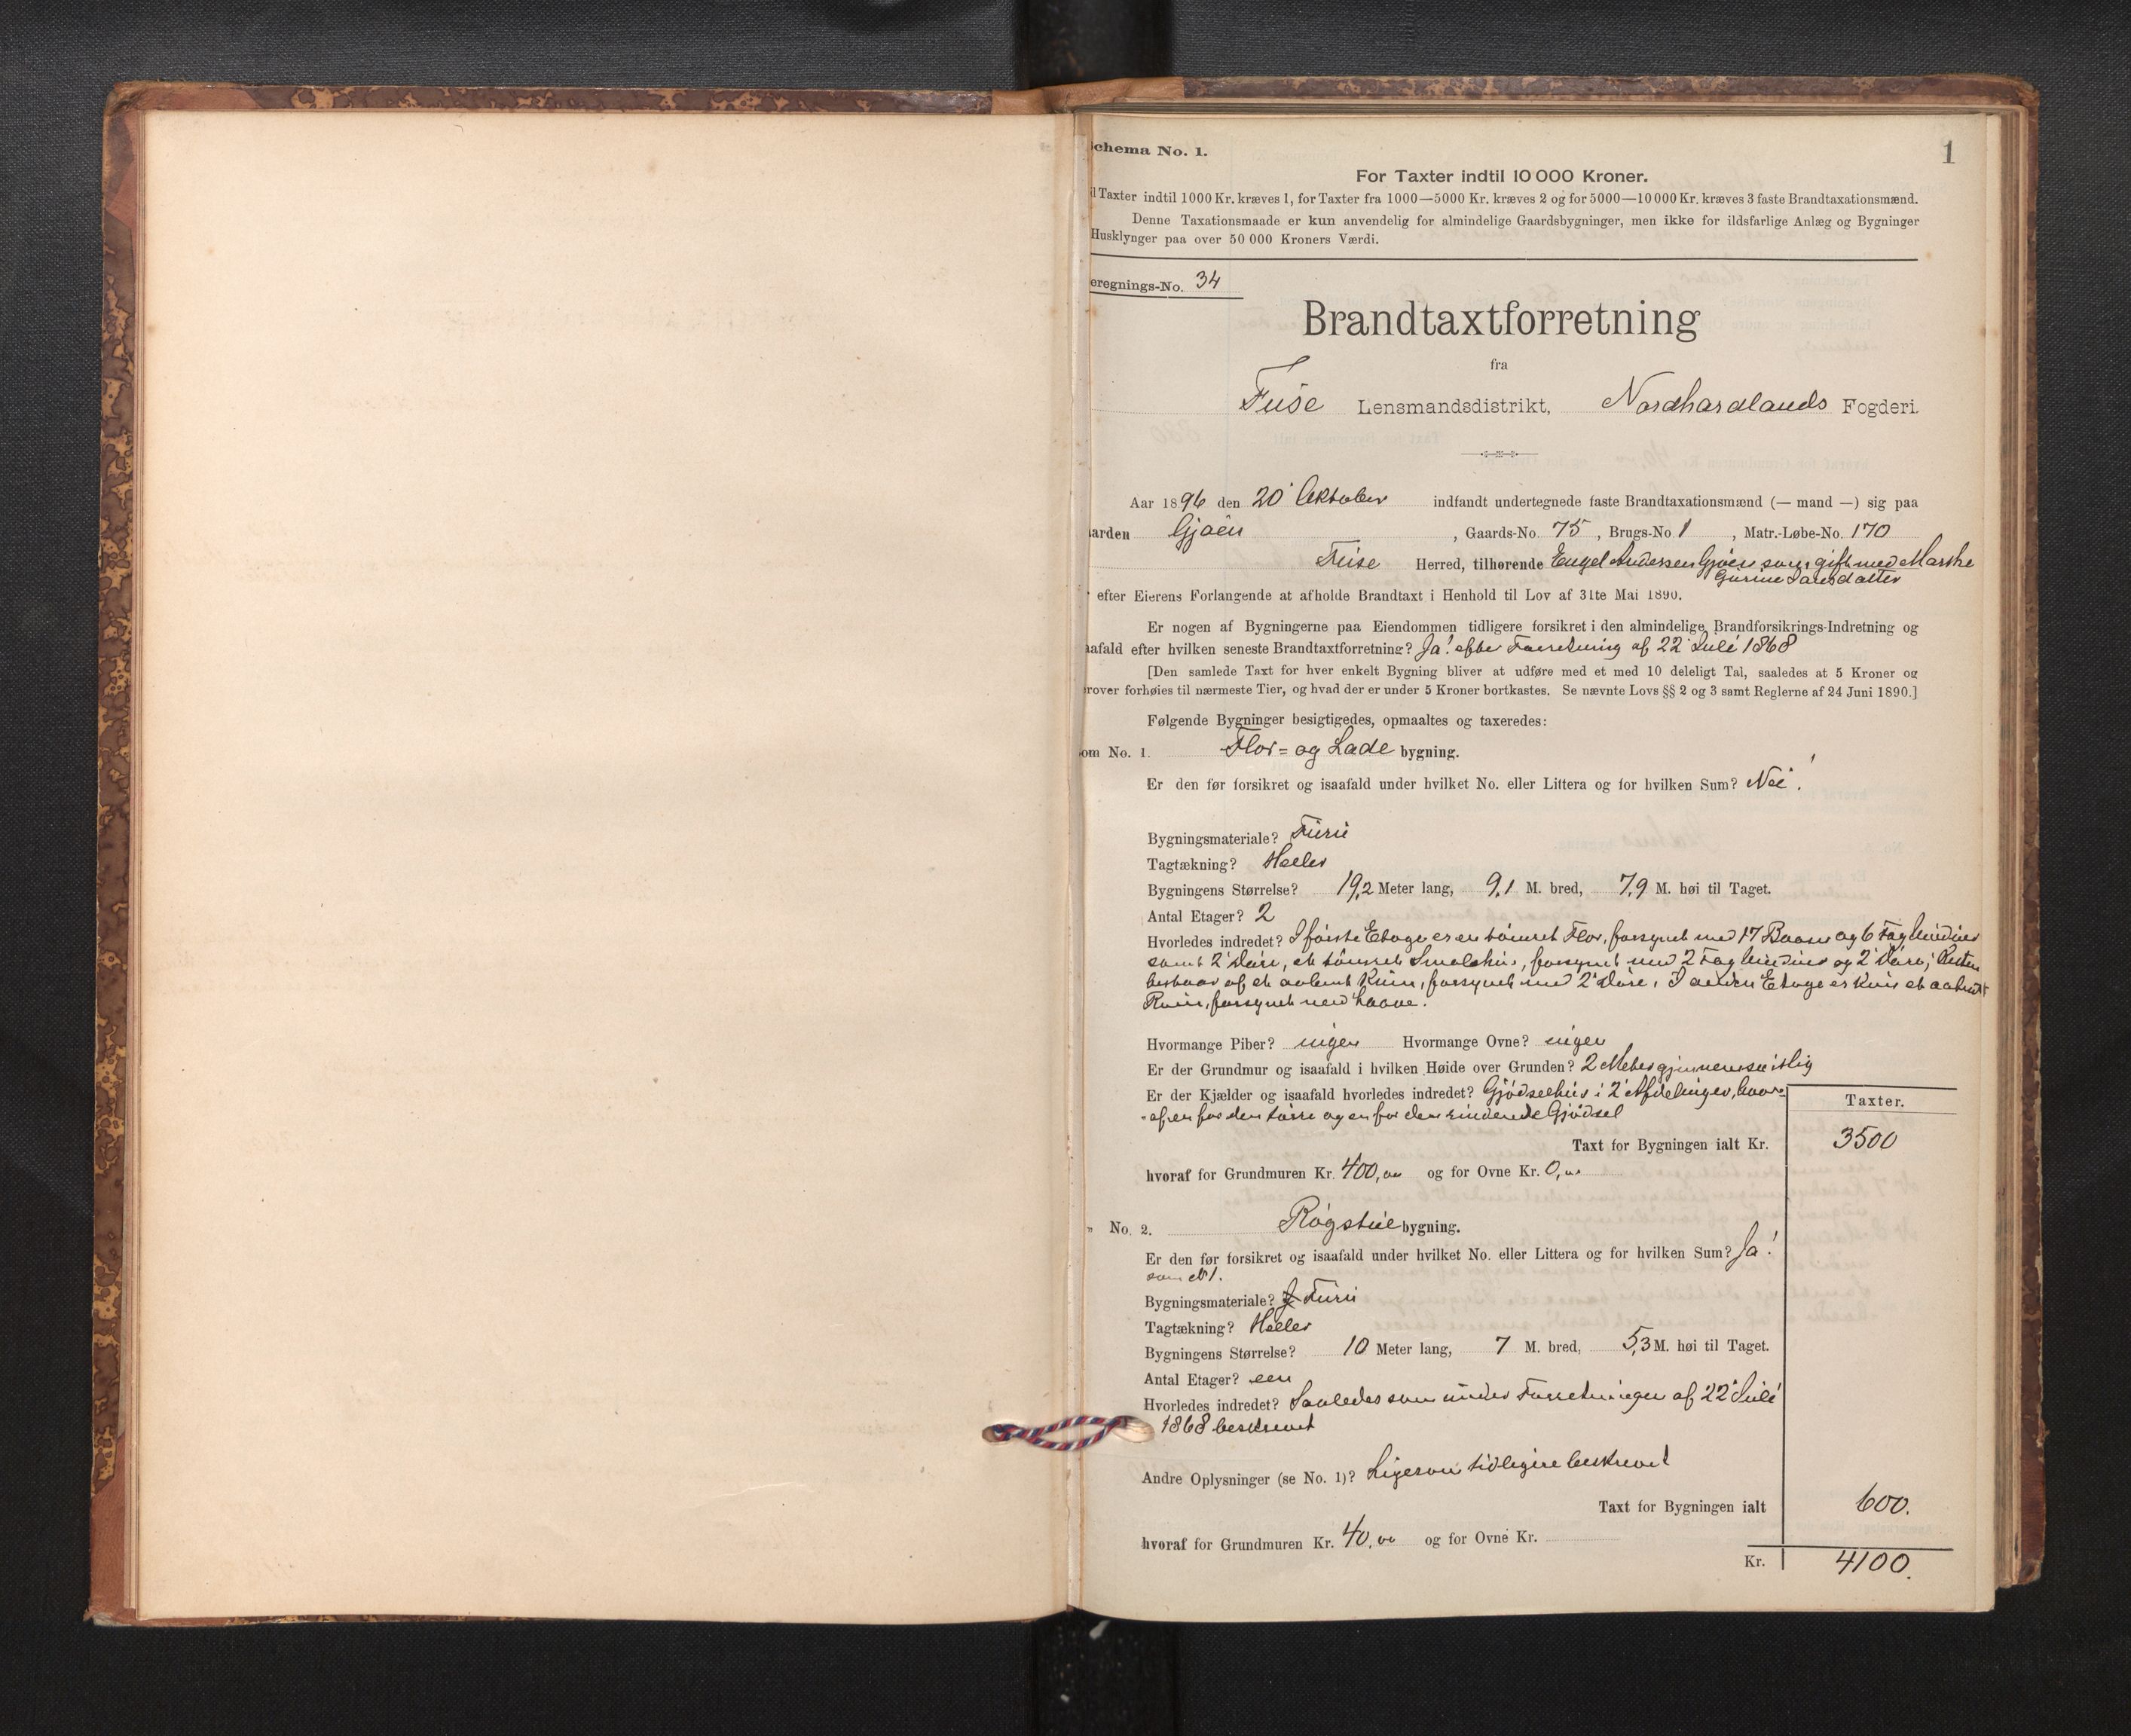 1
chema No. 1.
For Taxter indtil 10 000 Kroner.
il Taxter indtil 1000 Kr. kræves 1, for Taxter fra 1000—5000 Kr. kræves 2 og for 5000—10 000 Kr. kræves 3 faste Brandtaxationsmænd.
Denne Taxationsmaade er kun anvendelig for almindelige Gaardsbygninger, men ikke for ildsfarlige Anlæg og Bygninger
Husklynger paa over 50 000 Kroners Værdi.
eregnings-No. 34
Brandtaxtforretning
fra
Fuse Lensmandsdistrikt, Nordhordlands Fogderi.
Aar 1896 den 20' Oktober indfandt undertegnede faste Brandtaxationsmænd (— mand —) sig paa
arden Gjøen , Gaards-No. 75 , Brugs-No 1 , Matr.-Løbe-No. 170
Fuse Herred, tilhørende Engel Andersen Gjøen som gift med Marthe
Gurine Larsdatter
efter Eierens Forlangende at afholde Brandtaxt i Henhold til Lov af 31te Mai 1890.
Er nogen af Bygningerne paa Eiendommen tidligere forsikret i den almindelige Brandforsikrings-Indretning og
aafald efter hvilken seneste Brandtaxtforretning? Ja! efter Forretning af 22' Juli 1868
[Den samlede Taxt for hver enkelt Bygning bliver at udføre med et med 10 deleligt Tal, saaledes at 5 Kroner og
rover forhøies til nærmeste Tier, og hvad der er under 5 Kroner bortkastes. Se nævnte Lovs §§ 2 og 3 samt Reglerne af 24 Juni 1890.]
Følgende Bygninger besigtigedes, opmaaltes og taxeredes:
om No. 1. Flor- og Lade bygning.
Er den før forsikret og isaafald under hvilket No. eller Littera og for hvilken Sum? Nei!
Bygningsmateriale? Furu
Tagtækning? Heller
Bygningens Størrelse? 19,2 Meter lang, 9,1 M. bred, 7,9 M. høi til Taget.
Antal Etager? 2
Hvorledes indredet? I første Etage er en tømret Flor, forsynet med 17 Baase og 6 Fag Vinduer
samt 2 Døre, et tømret Smalehus, forsynet med 2 Fag Vinduer og 2 Døre; Resten
bestaar af et aabent Rum, forsynet med 2 Døre. I anden Etage er kun et aabent
Rum, forsynet med Laave.
Hvormange Piber? ingen Hvormange Ovne? ingen
Er der Grundmur og isaafald i hvilken Høide over Grunden? 2 Meter gjennemsnitlig
Er der Kjælder og isaafald hvorledes indredet? Gjødselhus i 2 Afdelinger, hvor-
-af en for den tørre og en for den rindende Gjødsel
Taxter.
Taxt for Bygningen ialt Kr. 3500
hvoraf for Grundmuren Kr. 400,00 og for Ovne Kr. 0,00
" No. 2. Røgstue bygning.
Er den før forsikret og isaafald under hvilket No. eller Littera og for hvilken Sum? Ja!
som N 1.
Bygningsmateriale? Furu
Tagtækning? Heller
Bygningens Størrelse? 10 Meter lang, 7 M. bred, 5,3 M. høi til Taget.
Antal Etager? een
Hvorledes indredet? Saaledes som under Forretningen af 22' Juli
1868 beskrevet
Andre Oplysninger (se No. 1)? Ligesom tidligere beskrevet
Taxt for Bygningen ialt 600.
hvoraf for Grundmuren Kr. 40,00 og for Ovne Kr.
Kr. 4100.